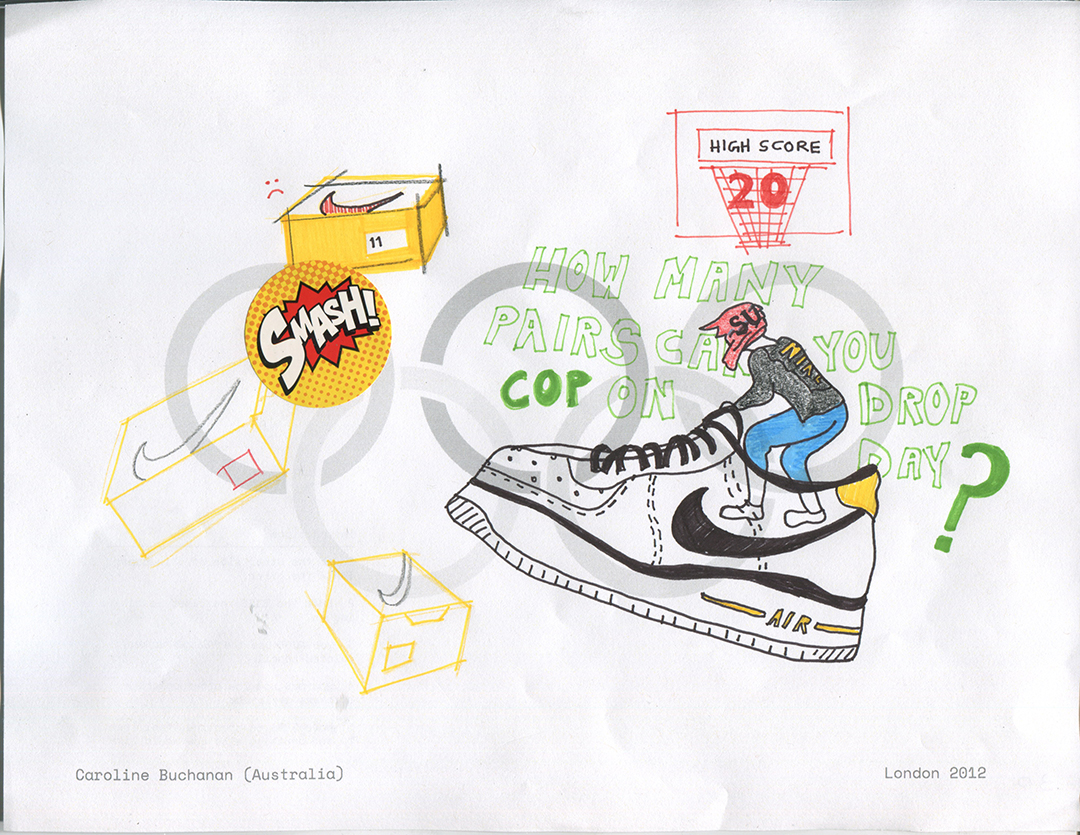 HIGH SCORE
20
11
SMASH!
HOW MANY
PAIRS CAN YOU
COP ON DROP
DAY?
SU
AIR
Caroline Buchanan (Australia)
London 2012